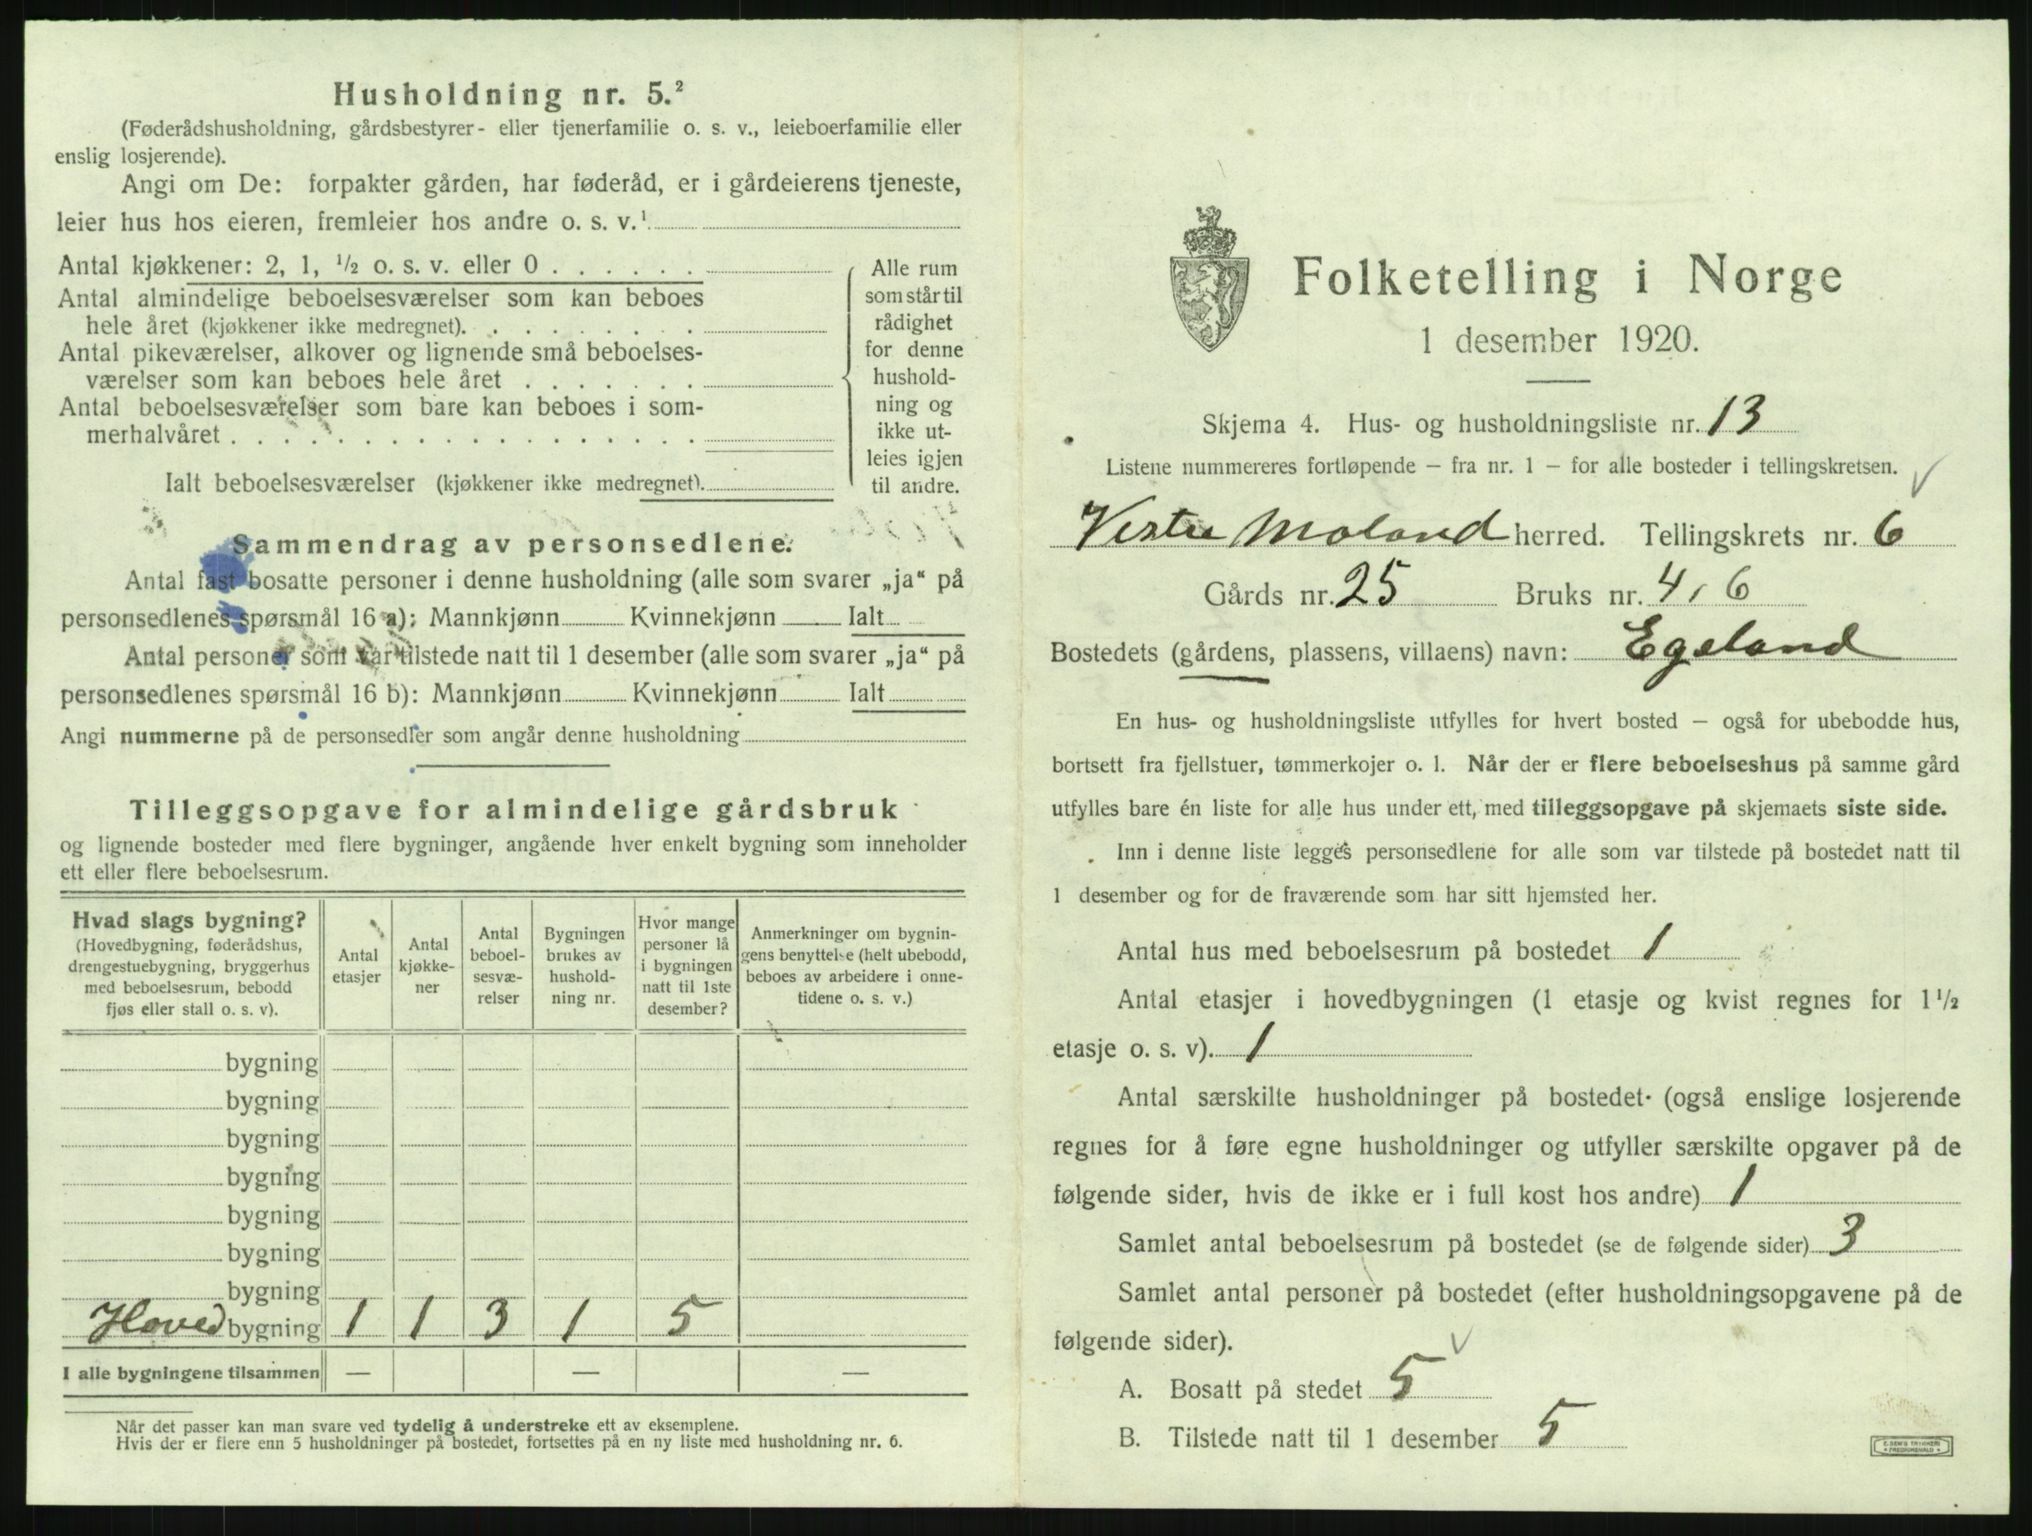 Husholdning nr. 5.²
(Føderådshusholdning, gårdsbestyrer- eller tjenerfamilie o. s. v., leieboerfamilie eller
enslig losjerende).
Angi om De: forpakter gården, har føderåd, er i gårdeierens tjeneste,
leier hus hos eieren, fremleier hos andre o. s. v.¹
Antal kjøkkener: 2, 1, ½ o. s. v. eller 0 . . . . . .
Antal almindelige beboelsesværelser som kan beboes
hele året (kjøkkener ikke medregnet). . . . . . . . .
Antal pikeværelser, alkover og lignende små beboelses-
værelser som kan beboes hele året . . . . . . .
Antal beboelsesværelser som bare kan beboes i som-
merhalvåret . . . . . . . . . . . . . . . . . .
Ialt beboelsesværelser (kjøkkener ikke medregnet).
Alle rum
som står til
rådighet
for denne
hushold-
ning og
ikke ut-
leies igjen
til andre.
Sammendrag av personsedlene.
Antal fast bosatte personer i denne husholdning (alle som svarer „ja“ på
personsedlenes spørsmål 16 a): Mannkjønn Kvinnekjønn Ialt
Antal personer som var tilstede natt til 1 desember (alle som svarer „ja“ på
personsedlenes spørsmål 16 b): Mannkjønn Kvinnekjønn Ialt
Angi nummerne på de personsedler som angår denne husholdning
Tilleggsopgave for almindelige gårdsbruk
og lignende bosteder med flere bygninger, angående hver enkelt bygning som inneholder
ett eller flere beboelsesrum.
Hvad slags bygning?
(Hovedbygning, føderådshus,
drengestuebygning, bryggerhus
med beboelsesrum, bebodd
fjøs eller stall o. s. v).
Antal
etasjer
Antal
kjøkke-
ner
Antal
beboel-
sesvæ-
relser
Bygningen
brukes av
hushold-
ning nr.
Hvor mange
personer lå
i bygningen
natt til 1ste
desember?
Anmerkninger om bygnin-
gens benyttelse (helt ubebodd,
beboes av arbeidere i onne-
tidene o. s. v.)
bygning
bygning
bygning
bygning
bygning
bygning
bygning
Hoved bygning 1 1 3 1 5
I alle bygningene tilsammen — — —
Når det passer kan man svare ved tydelig å understreke ett av eksemplene.
Hvis der er flere enn 5 husholdninger på bostedet, fortsettes på en ny liste med husholdning nr. 6.
Folketelling i Norge
1 desember 1920.
Skjema 4. Hus- og husholdningsliste nr. 13
Listene nummereres fortløpende — fra nr. 1 — for alle bosteder i tellingskretsen.
Vestre Moland herred. Tellingskrets nr. 6
Gårds nr. 25 Bruks nr. 4, 6
Bostedets (gårdens, plassens, villaens) navn: Egeland
En hus- og husholdningsliste utfylles for hvert bosted — også for ubebodde hus,
bortsett fra fjellstuer, tømmerkojer o. l. Når der er flere beboelseshus på samme gård
utfylles bare én liste for alle hus under ett, med tilleggsopgave på skjemaets siste side.
Inn i denne liste legges personsedlene for alle som var tilstede på bostedet natt til
1 desember og for de fraværende som har sitt hjemsted her.
Antal hus med beboelsesrum på bostedet 1
Antal etasjer i hovedbygningen (1 etasje og kvist regnes for 1½
etasje o. s. v). 1
Antal særskilte husholdninger på bostedet (også enslige losjerende
regnes for å føre egne husholdninger og utfyller særskilte opgaver på de
følgende sider, hvis de ikke er i full kost hos andre) 1
Samlet antal beboelsesrum på bostedet (se de følgende sider) 3
Samlet antal personer på bostedet (efter husholdningsopgavene på de
følgende sider).
A. Bosatt på stedet 5
B. Tilstede natt til 1 desember 5